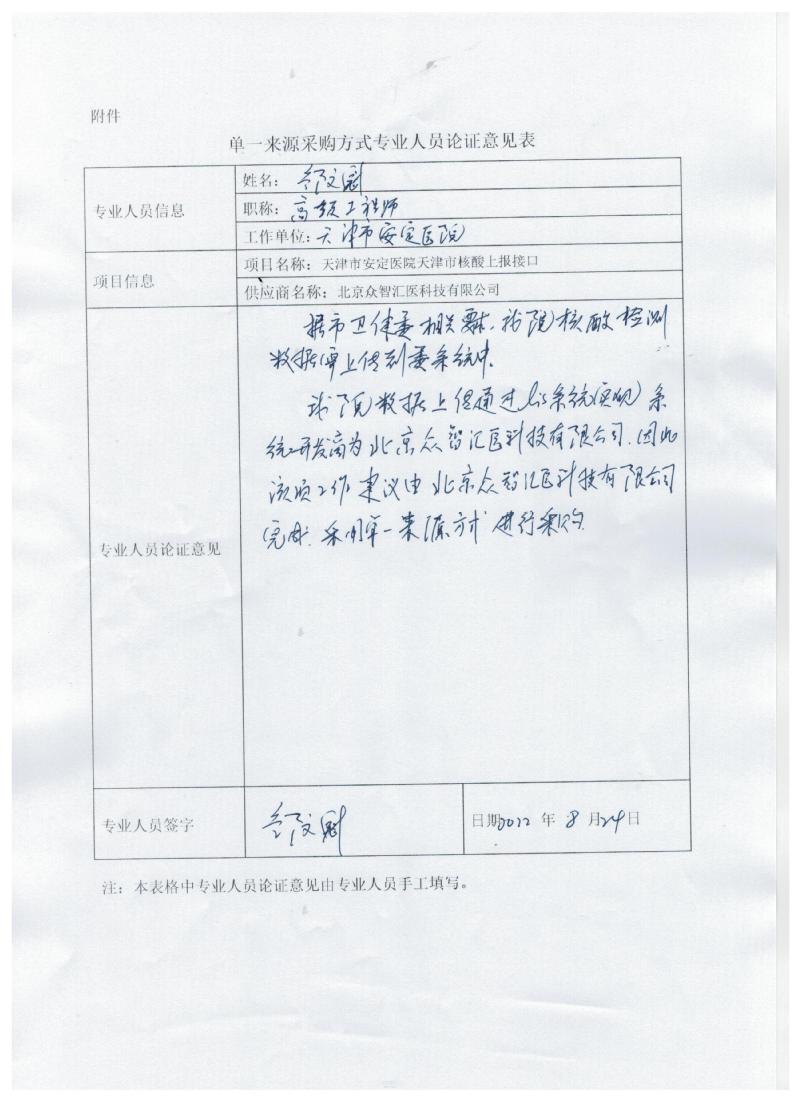 附件
单一来源采购方式专业人员论证意见表
专业人员信息
姓名：
职称：高级工程师
工作单位：天津市安定医院
项目信息
项目名称：天津市安定医院天津市核酸上报接口
供应商名称：北京众智汇医科技有限公司
专业人员论证意见
据市卫健委相关要求，我院核酸检测
数据需上传到委系统中。
我院数据上传通过lis系统实现，系
统开发商为北京众智汇医科技有限公司，因此
该项工作建议由北京众智汇医科技有限公司
完成，采用单一来源方式进行采购
专业人员签字
日期2022年8月24日
注：本表格中专业人员论证意见由专业人员手工填写。